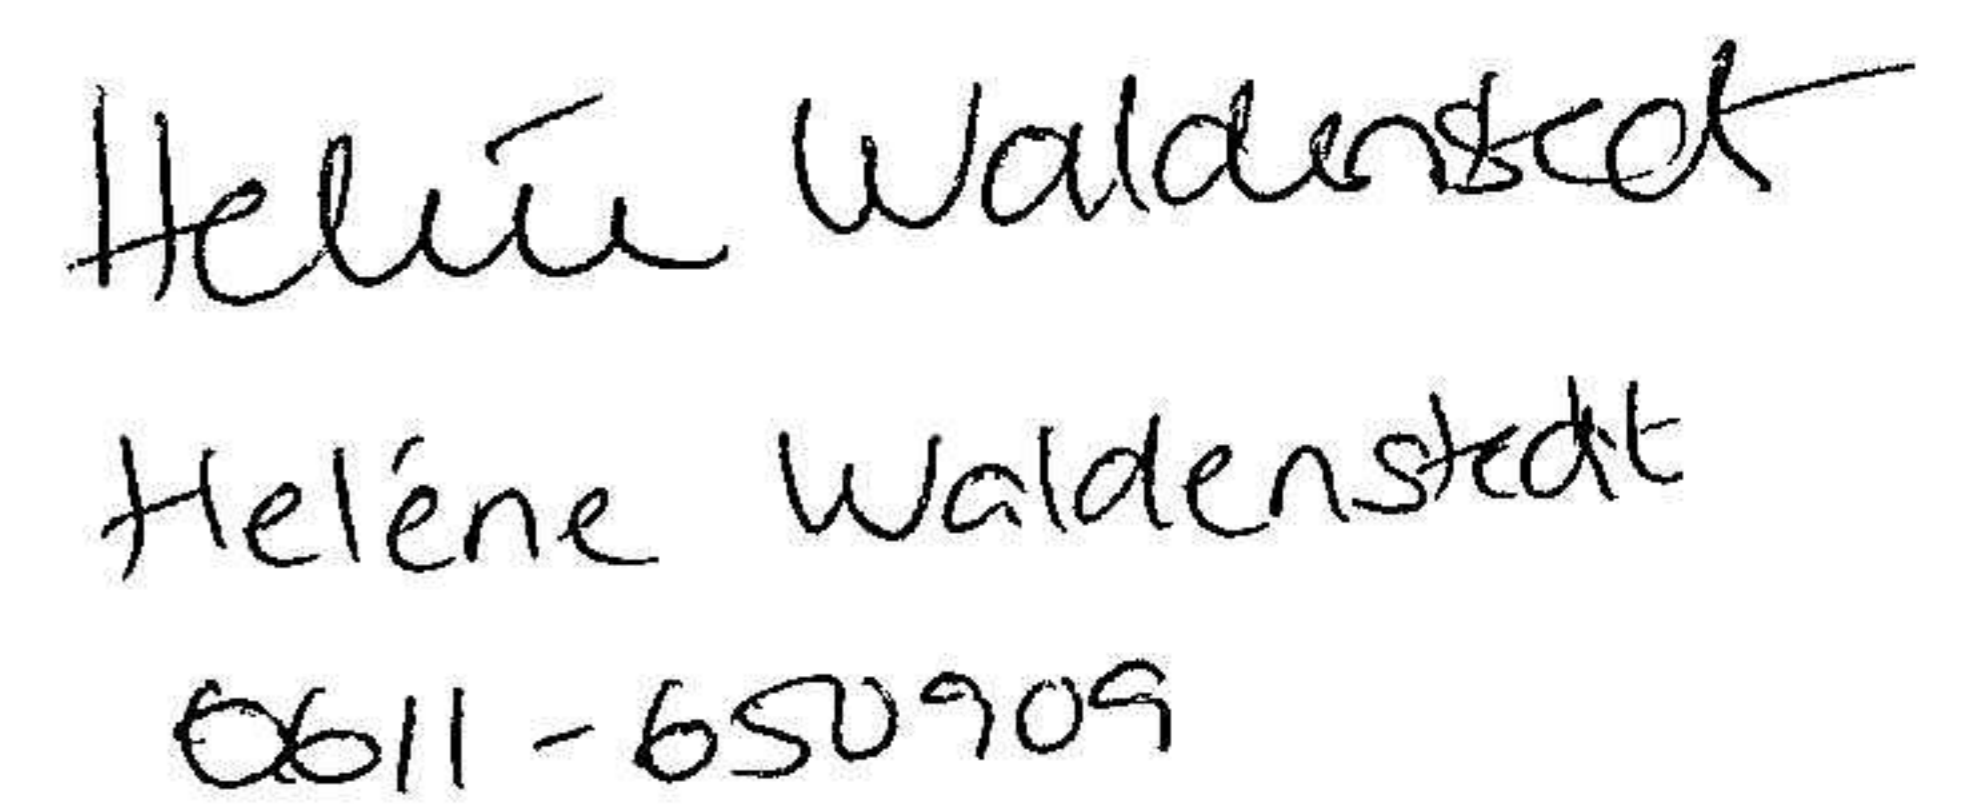 Heléne Waldenstedt
Heléne Waldenstedt
0611-650909